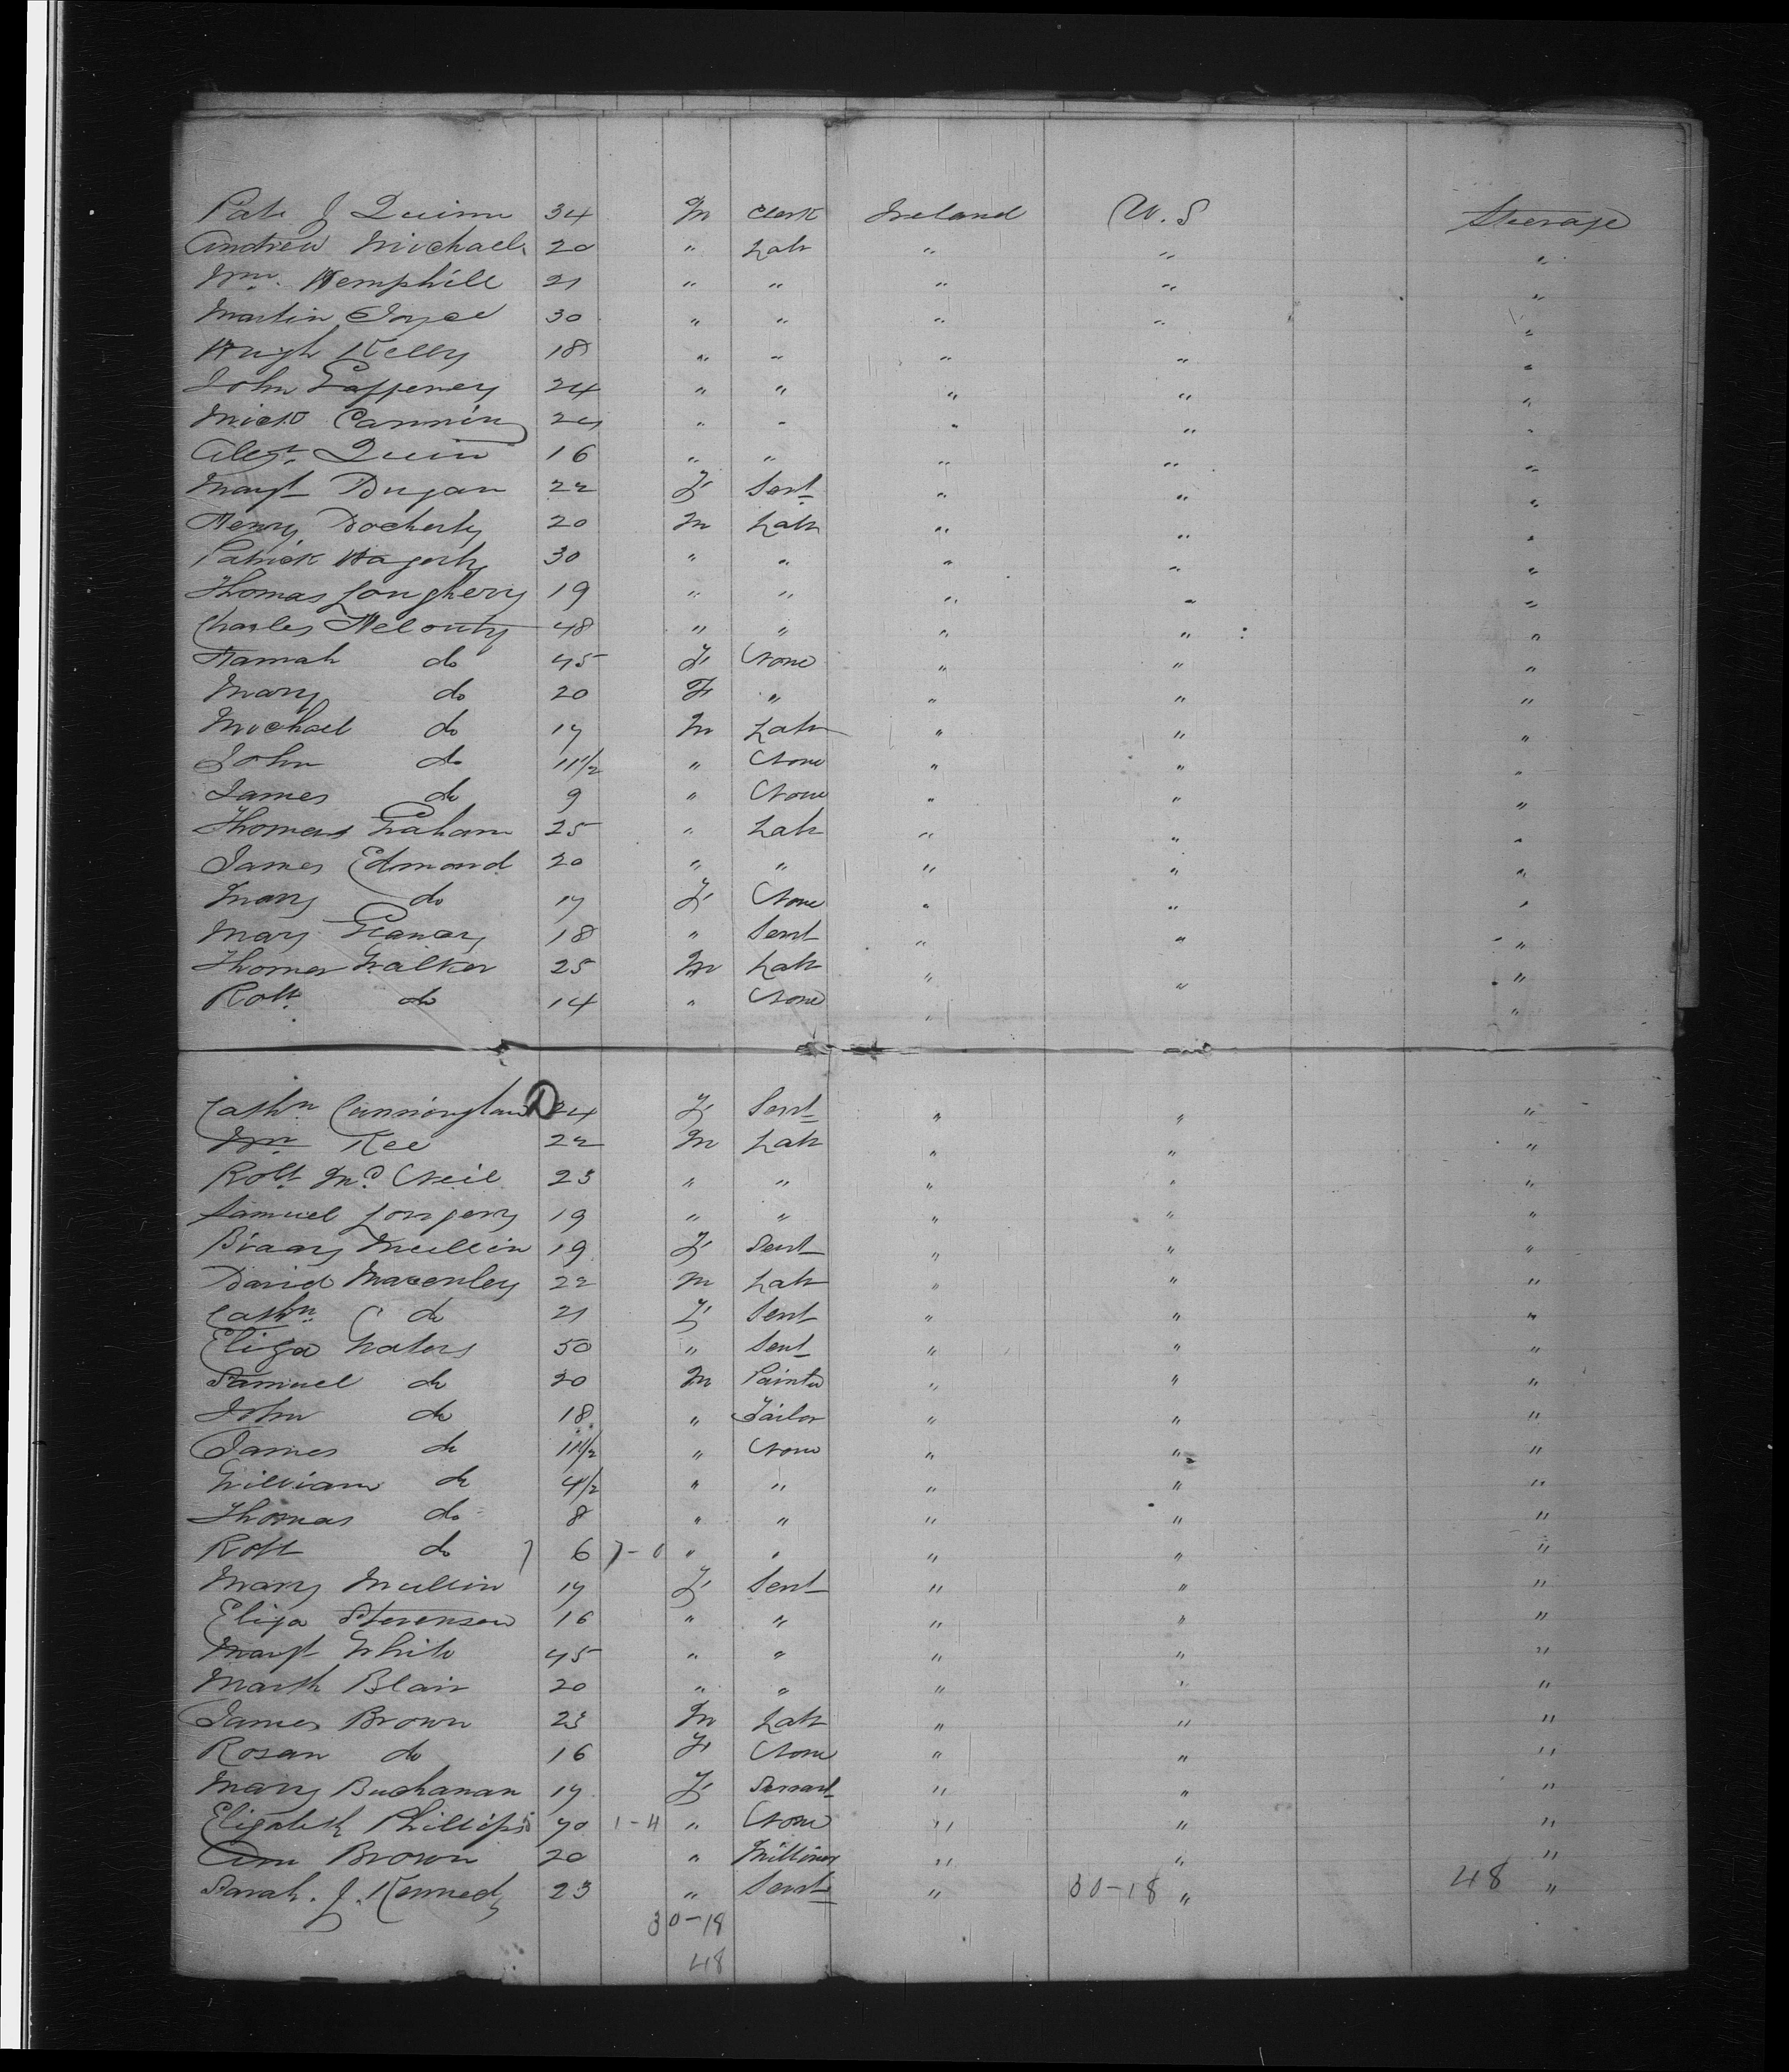 Patk J Quinn 34 M Clerk Ireland U.S Steerage
Andrew Michael 20 " Labr " " "
Wm. Hemphill 21 " " " " "
Martin Joyce 30 " " " " "
Hugh Kelly 18 " " " " "
John Gaffeney 24 " " " " "
Mick Cannin 24 " " " " "
Alexr. Quin 16 " " " " "
Margt Dugan 22 F Servt " " "
Henry Docherty 20 M Labr " " "
Patrick Hagerty 30 " " " " "
Thomas Loughery 19 " " " " "
Charles 48 " " " " "
Hannah do 45 F None " " "
Mary do 20 F " " " "
Michael do 17 M Labr " " "
John do 11 1/2 " None " " "
James do 9 " None " " "
Thomas Graham 25 " Labr " " "
James Edmond 20 " " " " "
Mary do 17 F None " " "
Mary 18 " Servt " " "
Thomas Walker 25 M Labr " " "
Robt. do 14 " None " " "
Cathn Cunningham D 24 F Servt " " "
Wm Kee 22 M Labr " " "
Robt. McNeil 23 " " " " "
Samuel Longery 19 " " " " "
Mullin 19 F Servt " " "
David Macenley 22 M Labr " " "
Cathn. do 21 F Servt " " "
Eliza Waters 50 " Servt " " "
Samuel do 20 M Painter " " "
John do 18 " Tailor " " "
James do 11 1/2 " None " " "
William do 4 1/2 " " " " "
Thomas do 8 " " " " "
Robt do 7 6 7-0 " " " " "
Mary Mullin 17 F Servt " " "
Eliza Stevenson 16 " " " " "
Margt White 45 " " " " "
Marth Blair 20 " " " " "
James Brown 23 M Labr " " "
Rosan do 16 F None " " "
Mary Buchanan 17 F Servant " " "
Elizabeth Phillips 70 1-4 " None " " "
Ann Brown 20 " Milliner " " "
Sarah. J. Kennedy 23 " Servt " 30-18 " 48 "
30-18
48